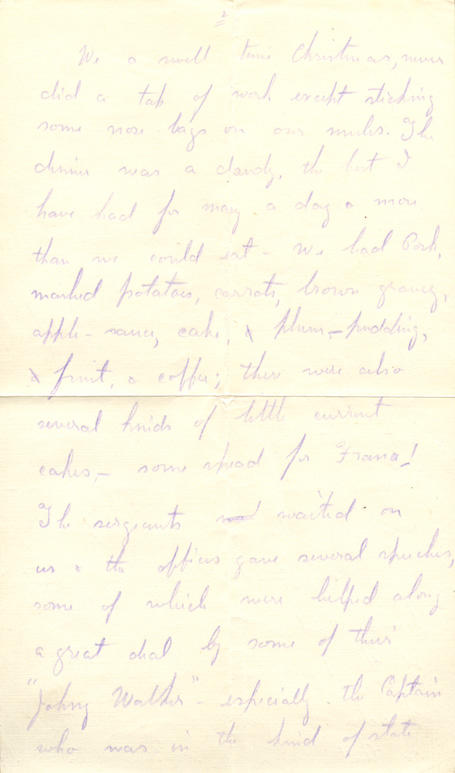 2
We a swell time Christmas, never
did a tap of work except sticking
some nose bags on our mules. The
dinner was a dandy, the best I
have had for many a day & more
than we could eat – We had Pork,
mashed potatoes, carrots, brown gravey,
apple-sauce, cake, & plum-pudding,
& fruit, & coffee; there were also
several kinds of little currant
cakes, – some spread for France!
The sergeants waited on
us & the officers gave several speeches,
some of which were helped along
a great deal by some of their
"Johny Walker" – especially the Captain
who was in the kind of state